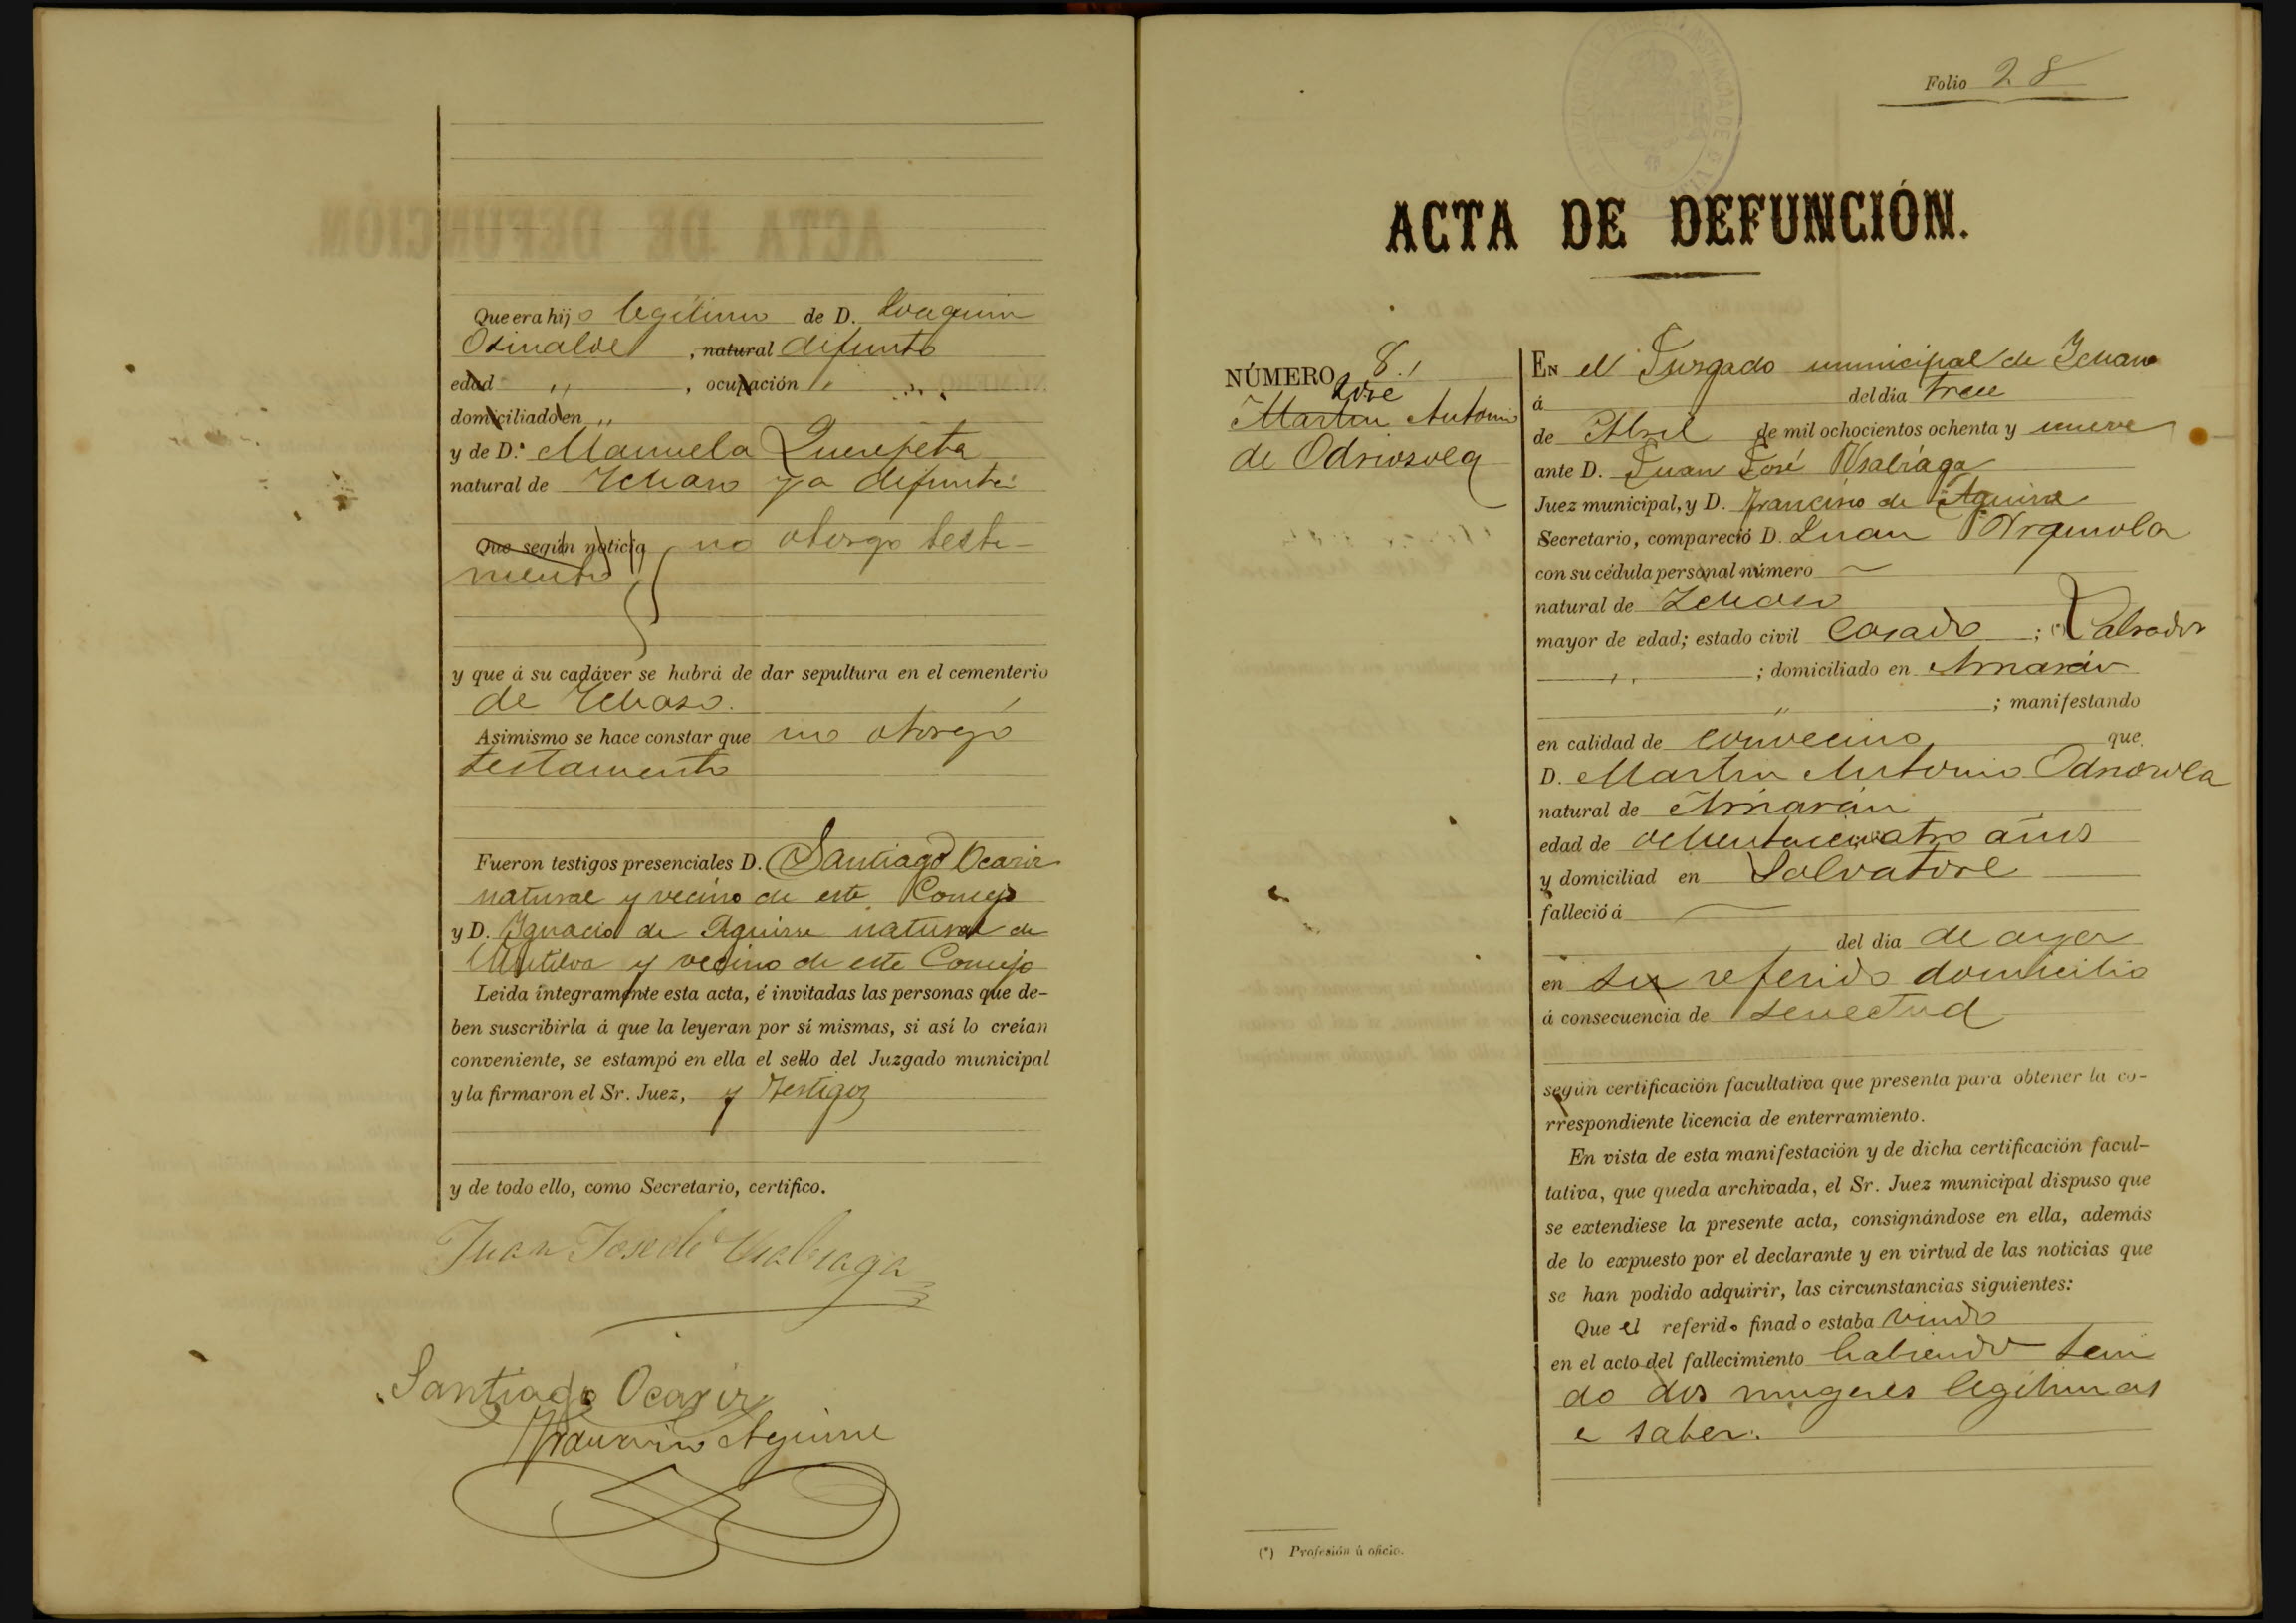 Que era hijo legítimo de D. Joaquin
Osinalde, natural difunto
edad " , ocupación " "
domiciliado en "
y de D.ª Manuela Querejeta
natural de Ichaso ya difunta
Que según noticia no otorgo testa-
mento
y que á su cadáver se habrá de dar sepultura en el cementerio
de Ichaso.
Asimismo se hace constar que no otorgó
testamento
Fueron testigos presenciales D. Santiago Ocariz
natural y vecino de este Concejo
y D. Ignacio de Aguirre natural de
Mutiloa y vecino de este Concejo
Leida íntegramente esta acta, é invitadas las personas que de-
ben suscribirla á que la leyeran por sí mismas, si así lo creían
conveniente, se estampó en ella el sello del Juzgado municipal
y la firmaron el Sr. Juez, y Testigos
y de todo ello, como Secretario, certifico.
Juan José de Usabiaga
Santiago Ocariz
Francisco Aguirre
Folio 28
ACTA DE DEFUNCIÓN.
NÚMERO 8.
José
Martin Antonio
de Odriozola
EN el Juzgado municipal de Ichaso
á del dia trece
de Abril de mil ochocientos ochenta y nueve
ante D. Juan José Usabiaga
Juez municipal, y D. Francisco de Aguirre
Secretario, compareció D. Juan Arquiola
con su cédula personal número
natural de Ichaso
mayor de edad; estado civil Casado ; (*) Labrador
" ; domiciliado en Arriarán
" ; manifestando
en calidad de convecino que
D. Martin Antonio Odriozola
natural de Arriarán
edad de ochentaicuatro años
y domiciliad en Salvatore
falleció á
del dia de ayer
en su referido domicilio
á consecuencia de senectud
según certificación facultativa que presenta para obtener la co-
rrespondiente licencia de enterramiento.
En vista de esta manifestación y de dicha certificación facul-
tativa, que queda archivada, el Sr. Juez municipal dispuso que
se extendiese la presente acta, consignándose en ella, además
de lo expuesto por el declarante y en virtud de las noticias que
se han podido adquirir, las circunstancias siguientes:
Que el referido finado estaba viudo
en el acto del fallecimiento habiendo teni
do dos mugeres legítimas
a saber:
(*) Profesión ú oficio.